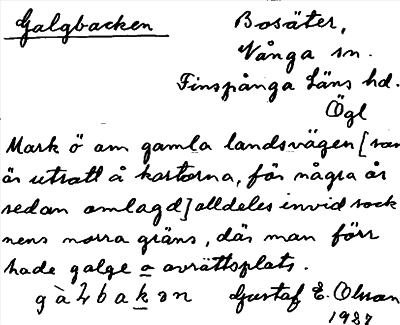 Galgbacken
Bosäter,
Vånga sn.
Finspånga Läns hd.
Ögl
Mark ö om gamla landsvägen [som
är utsatt å kartorna, för några år
sedan omlagd] alldeles invid sock
nens norra gräns, där man förr
hade galge o avrättsplats.
Gustaf E. Olsson